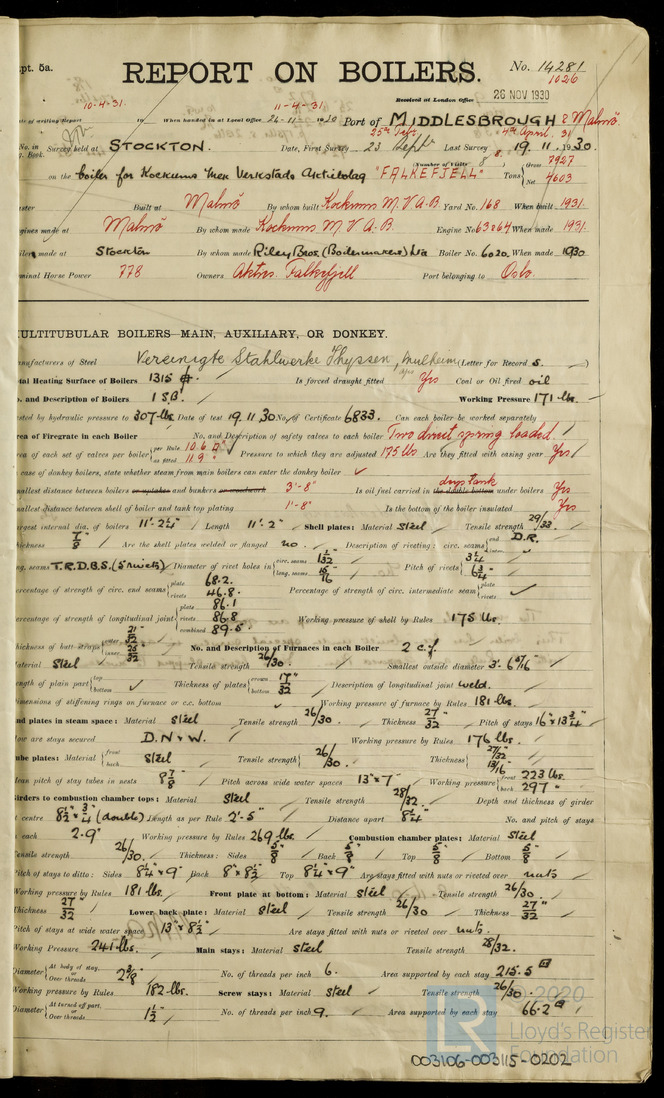 pt. 5a.
REPORT ON BOILERS.
No. 14281
1026
Received at London Office 26 NOV 1930
10-4-31. 11-4-31.
te of writing Report 10 When handed in at Local Office 24-11-1930 Port of MIDDLESBROUGH & Malmö
25th Sept. 4th April. 31
No. in Survey held at STOCKTON. Date, First Survey 23 Sept Last Survey 19. 11. 1930.
g. Book.
(Number of Visits 8
on the boiler for Kockums Mek Verkstads Aktiebolag "FALKEFJELL" Tons Gross 7927
Net 4603
ster Built at Malmö By whom built Kockums M. V. A-B. Yard No. 168 When built 1931
gines made at Malmö By whom made Kockums M V A-B. Engine No 63264 When made 1931.
ilers made at Stockton By whom made Riley Bros. (Boilermakers) Ltd Boiler No. 6020. When made 1930
minal Horse Power 778 Owners Aktus. Falkefjell Port belonging to Oslo.
ULTITUBULAR BOILERS—MAIN, AUXILIARY, OR DONKEY.
anufacturers of Steel Vereinigte Stahlwerke Thyssen, Mulheim (Letter for Record S. )
tal Heating Surface of Boilers 1315 Is forced draught fitted Yes Coal or Oil fired oil
o. and Description of Boilers 1 SB. Working Pressure 171 lbs.
sted by hydraulic pressure to 307 lbs Date of test 19. 11. 30 No. of Certificate 6833. Can each boiler be worked separately
rea of Firegrate in each Boiler No. and Description of safety valves to each boiler Two direct spring loaded.
rea of each set of valves per boiler per Rule 10.6 Pressure to which they are adjusted 175 lbs Are they fitted with easing gear Yes
as fitted 11.9
case of donkey boilers, state whether steam from main boilers can enter the donkey boiler ✓
mallest distance between boilers or uptakes and bunkers or woodwork 3'-8" Is oil fuel carried in the double bottom under boilers Yes
mallest distance between shell of boiler and tank top plating 1'-8" Is the bottom of the boiler insulated Yes
rgest internal dia. of boilers 11'-2¼" Length 11'-2" Shell plates: Material Steel Tensile strength 29/33.
hickness 7/8" Are the shell plates welded or flanged no. Description of riveting: circ. seams end D.R.
g. seams T.R.D.B.S. (5 rivets) Diameter of rivet holes in circ. seams 1 1/32" Pitch of rivets 3¼
long. seams 15/16 6¾
ercentage of strength of circ. end seams plate 68.2. Percentage of strength of circ. intermediate seam plate
rivets 46.8. rivets
ercentage of strength of longitudinal joint plate 86.1 Working pressure of shell by Rules 175 lbs.
rivets 86.8
combined 89.5
hickness of butt straps outer 21/32 No. and Description of Furnaces in each Boiler 2 c.f.
inner 25/32
aterial Steel Tensile strength 26/30. Smallest outside diameter
ength of plain part top Thickness of plates crown 17/32" Description of longitudinal joint weld.
bottom bottom
imensions of stiffening rings on furnace or c.c. bottom Working pressure of furnace by Rules 181 lbs.
nd plates in steam space: Material Steel Tensile strength 26/30 Thickness 27/32" Pitch of stays 16" x 13¾"
ow are stays secured D.N & W. Working pressure by Rules 176 lbs.
ube plates: Material front Steel Tensile strength 26/30. Thickness 27/32"
back 13/16"
ean pitch of stay tubes in nests 8 7/8 Pitch across wide water spaces 13" x 7" Working pressure front 223 lbs.
back 297 "
irders to combustion chamber tops: Material Steel Tensile strength 28/32. Depth and thickness of girder
t centre 8½" x ¾" (double) Length as per Rule 2'-5" Distance apart 8¼" No. and pitch of stays
each 2-9" Working pressure by Rules 269 lbs Combustion chamber plates: Material Steel
ensile strength 26/30. Thickness: Sides 5/8" Back 5/8" Top 5/8" Bottom 5/8"
itch of stays to ditto: Sides 8¼" x 9" Back 8" x 8½" Top 8¼" x 9" Are stays fitted with nuts or riveted over nuts
orking pressure by Rules 181 lbs. Front plate at bottom: Material Steel Tensile strength 26/30.
hickness 27/32" Lower back plate: Material Steel Tensile strength 26/30 Thickness 27/32"
itch of stays at wide water space 13" x 8½" Are stays fitted with nuts or riveted over nuts.
orking Pressure 241 lbs. Main stays: Material Steel Tensile strength 28/32.
iameter At body of stay, or Over threads 2 3/8" No. of threads per inch 6. Area supported by each stay 215.5
orking pressure by Rules 182 lbs. Screw stays: Material Steel Tensile strength 26/30
iameter At turned off part, or Over threads 1½" No. of threads per inch 9. Area supported by each stay 66.2
© 2020
LR Lloyd's Register
Foundation
003106-003115-0202